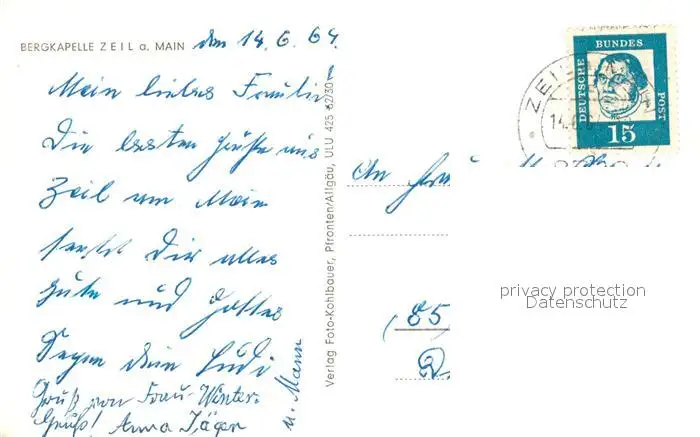 BERGKAPELLE ZEIL a. MAIN den 14.6.64.
Mein liebes
Die besten Grüße aus
Zeil am Main
Dir alles
Gute und Gottes
Segen dein
Gruß von Frau Winter.
Gruß! Anna Jäger
u. Mann
Verlag Foto-Kohlbauer, Pfronten/Allgäu, ULU 425 62/30
DEUTSCHE
BUNDES
POST
15
ZEIL
14.6
An Frau
(85
privacy protection
Datenschutz